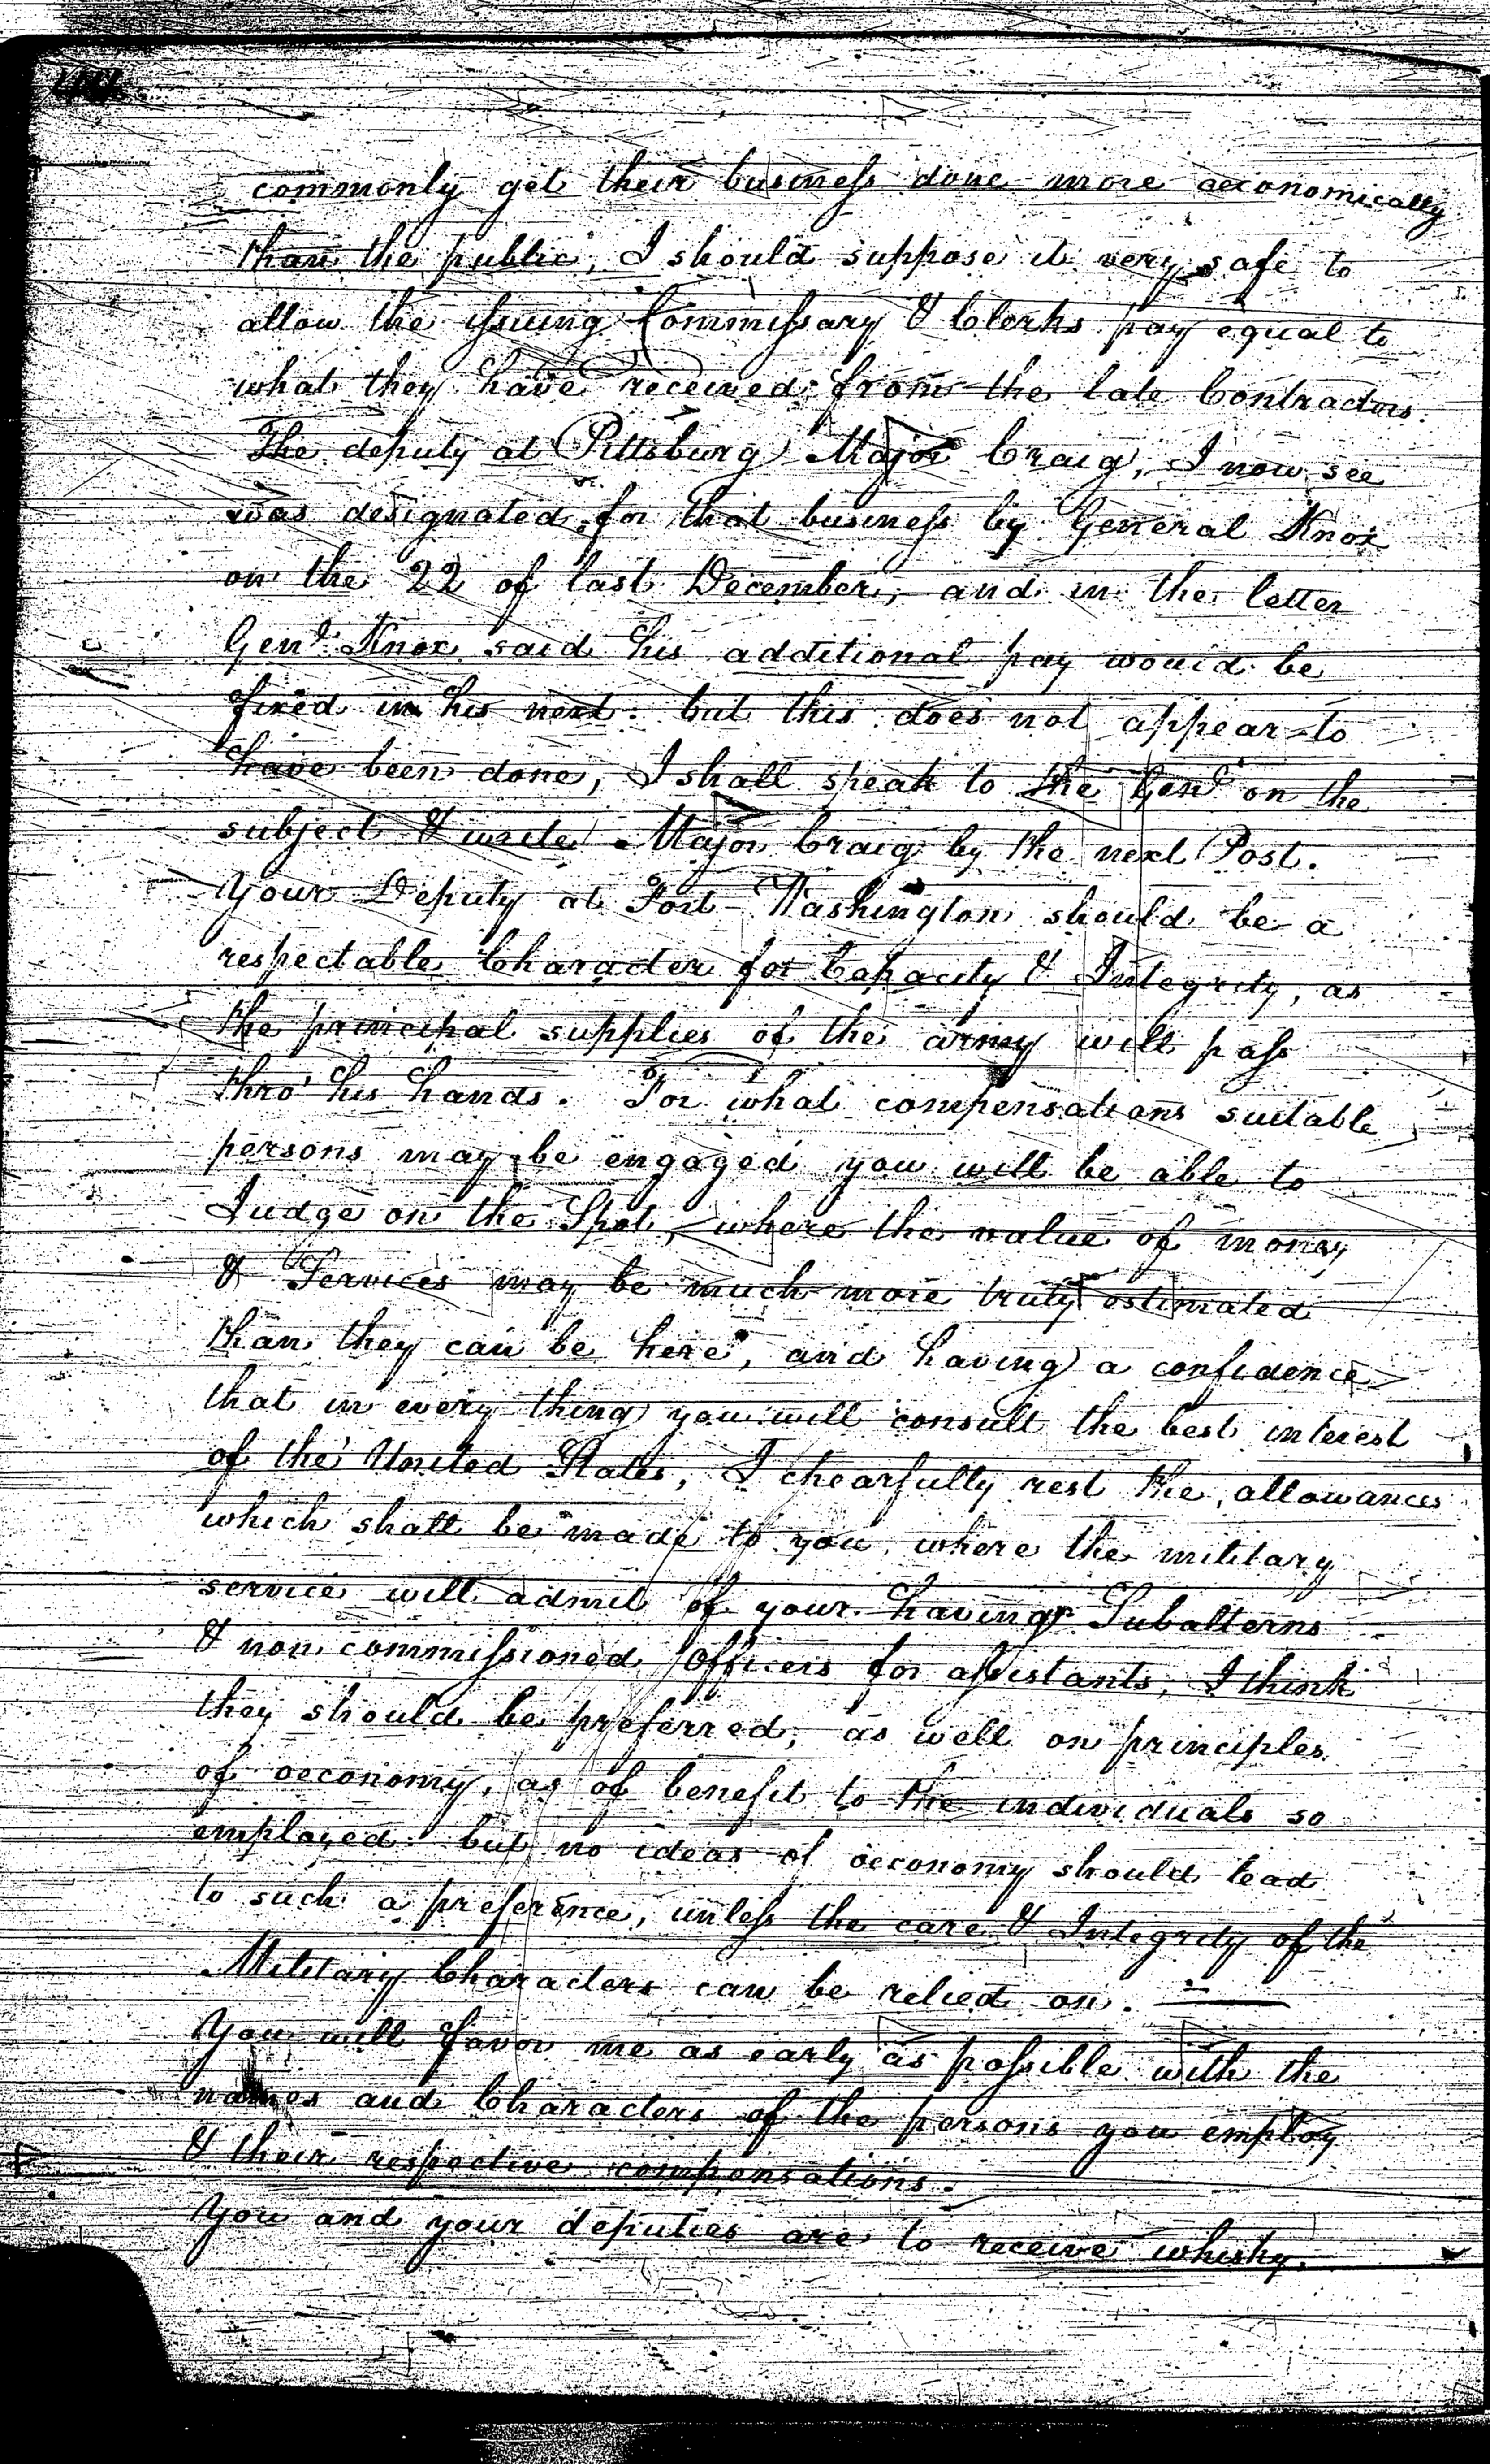 commonly get their business done more oeconomically
than the public, I should suppose it very safe to
allow the issuing Commissary & Clerks pay equal to
what they have received from the late Contractors.
The deputy at Pittsburg Major Craig, I now see
was designated for that business by General Knox
on the 22 of last December, and in the letter
Genl. Knox said his additional pay would be
fixed in his next. but this does not appear to
have been done, I shall speak to the Genl on the
subject & write Major Craig by the next Post.
Your Deputy at Fort Washington should be a
respectable Character for Capacity & Integrity, as
the principal supplies of the army will pass
thro' his hands. For what compensations suitable
persons may be engaged you will be able to
Judge on the Spot, where the value of money
& Services may be much more truly estimated
than they can be here, and having a confidence
that in every thing you will consult the best interest
of the United States, I chearfully rest the allowances
which shall be made to you, where the military
service will admit of your having Subalterns
& non commissioned Officers for assistants, I think
they should be preferred, as well on principles
of oeconomy, as of benefit to the individuals so
employed. but no ideas of oeconomy should lead
to such a preference, unless the care & Integrity of the
Military Characters can be relied on.
You will favor me as early as possible with the
names and Characters of the persons you employ
& their respective compensations.
You and your deputies are to receive whisky,